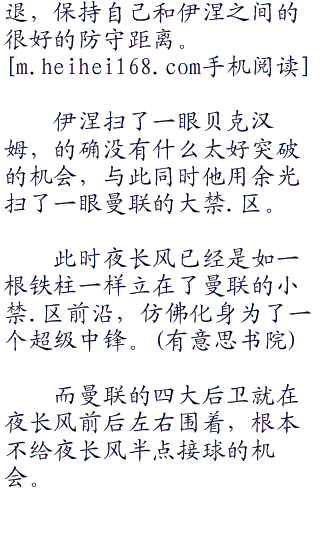 退，保持自己和伊涅之间的
很好的防守距离。
[m.heihei168.com手机阅读]
伊涅扫了一眼贝克汉
姆，的确没有什么太好突破
的机会，与此同时他用余光
扫了一眼曼联的大禁.区。
此时夜长风已经是如一
根铁柱一样立在了曼联的小
禁.区前沿，仿佛化身为了一
个超级中锋。(有意思书院)
而曼联的四大后卫就在
夜长风前后左右围着，根本
不给夜长风半点接球的机
会。